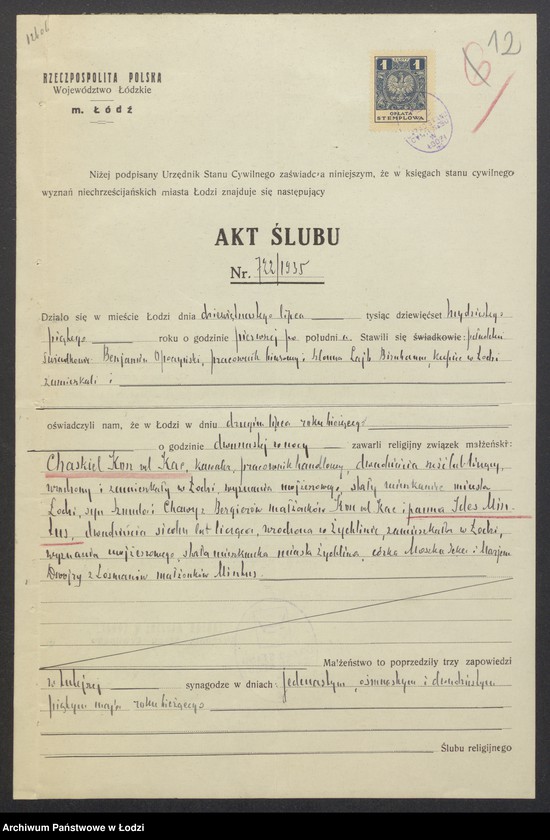 126b
12
6
RZECZPOSPOLITA POLSKA
Województwo Łódzkie
m. Łódź
1 ZŁOTY 1
OPŁATA
STEMPLOWA
Niżej podpisany Urzędnik Stanu Cywilnego zaświadcza niniejszym, że w księgach stanu cywilnego
wyznań niechrześcijańskich miasta Łodzi znajduje się następujący
AKT ŚLUBU
Nr. 722/1935
Działo się w mieście Łodzi dnia dziewiętnastego lipca tysiąc dziewięćset trzydziestego
piątego roku o godzinie pierwszej po południu. Stawili się świadkowie: pełnoletni
świadkowie Benjamin Opoczyński, pracownik biurowy i Szloma Lajb Birnbaum, kupiec w Łodzi
zamieszkali i
oświadczyli nam, że w Łodzi w dniu drugim lipca roku bieżącego
o godzinie dwunastej w nocy zawarli religijny związek małżeński:
Chaskiel Kon vel Kac, kawaler, pracownik handlowy, dwadzieścia sześć lat liczący,
urodzony i zamieszkały w Łodzi, wyznania mojżeszowego, stały mieszkaniec miasta
Łodzi, syn Szmula i Chawy z Bergierów małżonków Kon vel Kac i panna Ides Min-
kus, dwadzieścia siedem lat licząca, urodzona w Żychlinie, zamieszkała w Łodzi,
wyznania mojżeszowego, stała mieszkanka miasta Żychlina, córka Moszka Icka i Marjem
Dwojry z Losmanów małżonków Minkus
Małżeństwo to poprzedziły trzy zapowiedzi
w tutejszej synagodze w dniach: jedenastym, ośmnastym i dwudziestym
piątym maja roku bieżącego
Ślubu religijnego
Archiwum Państwowe w Łodzi